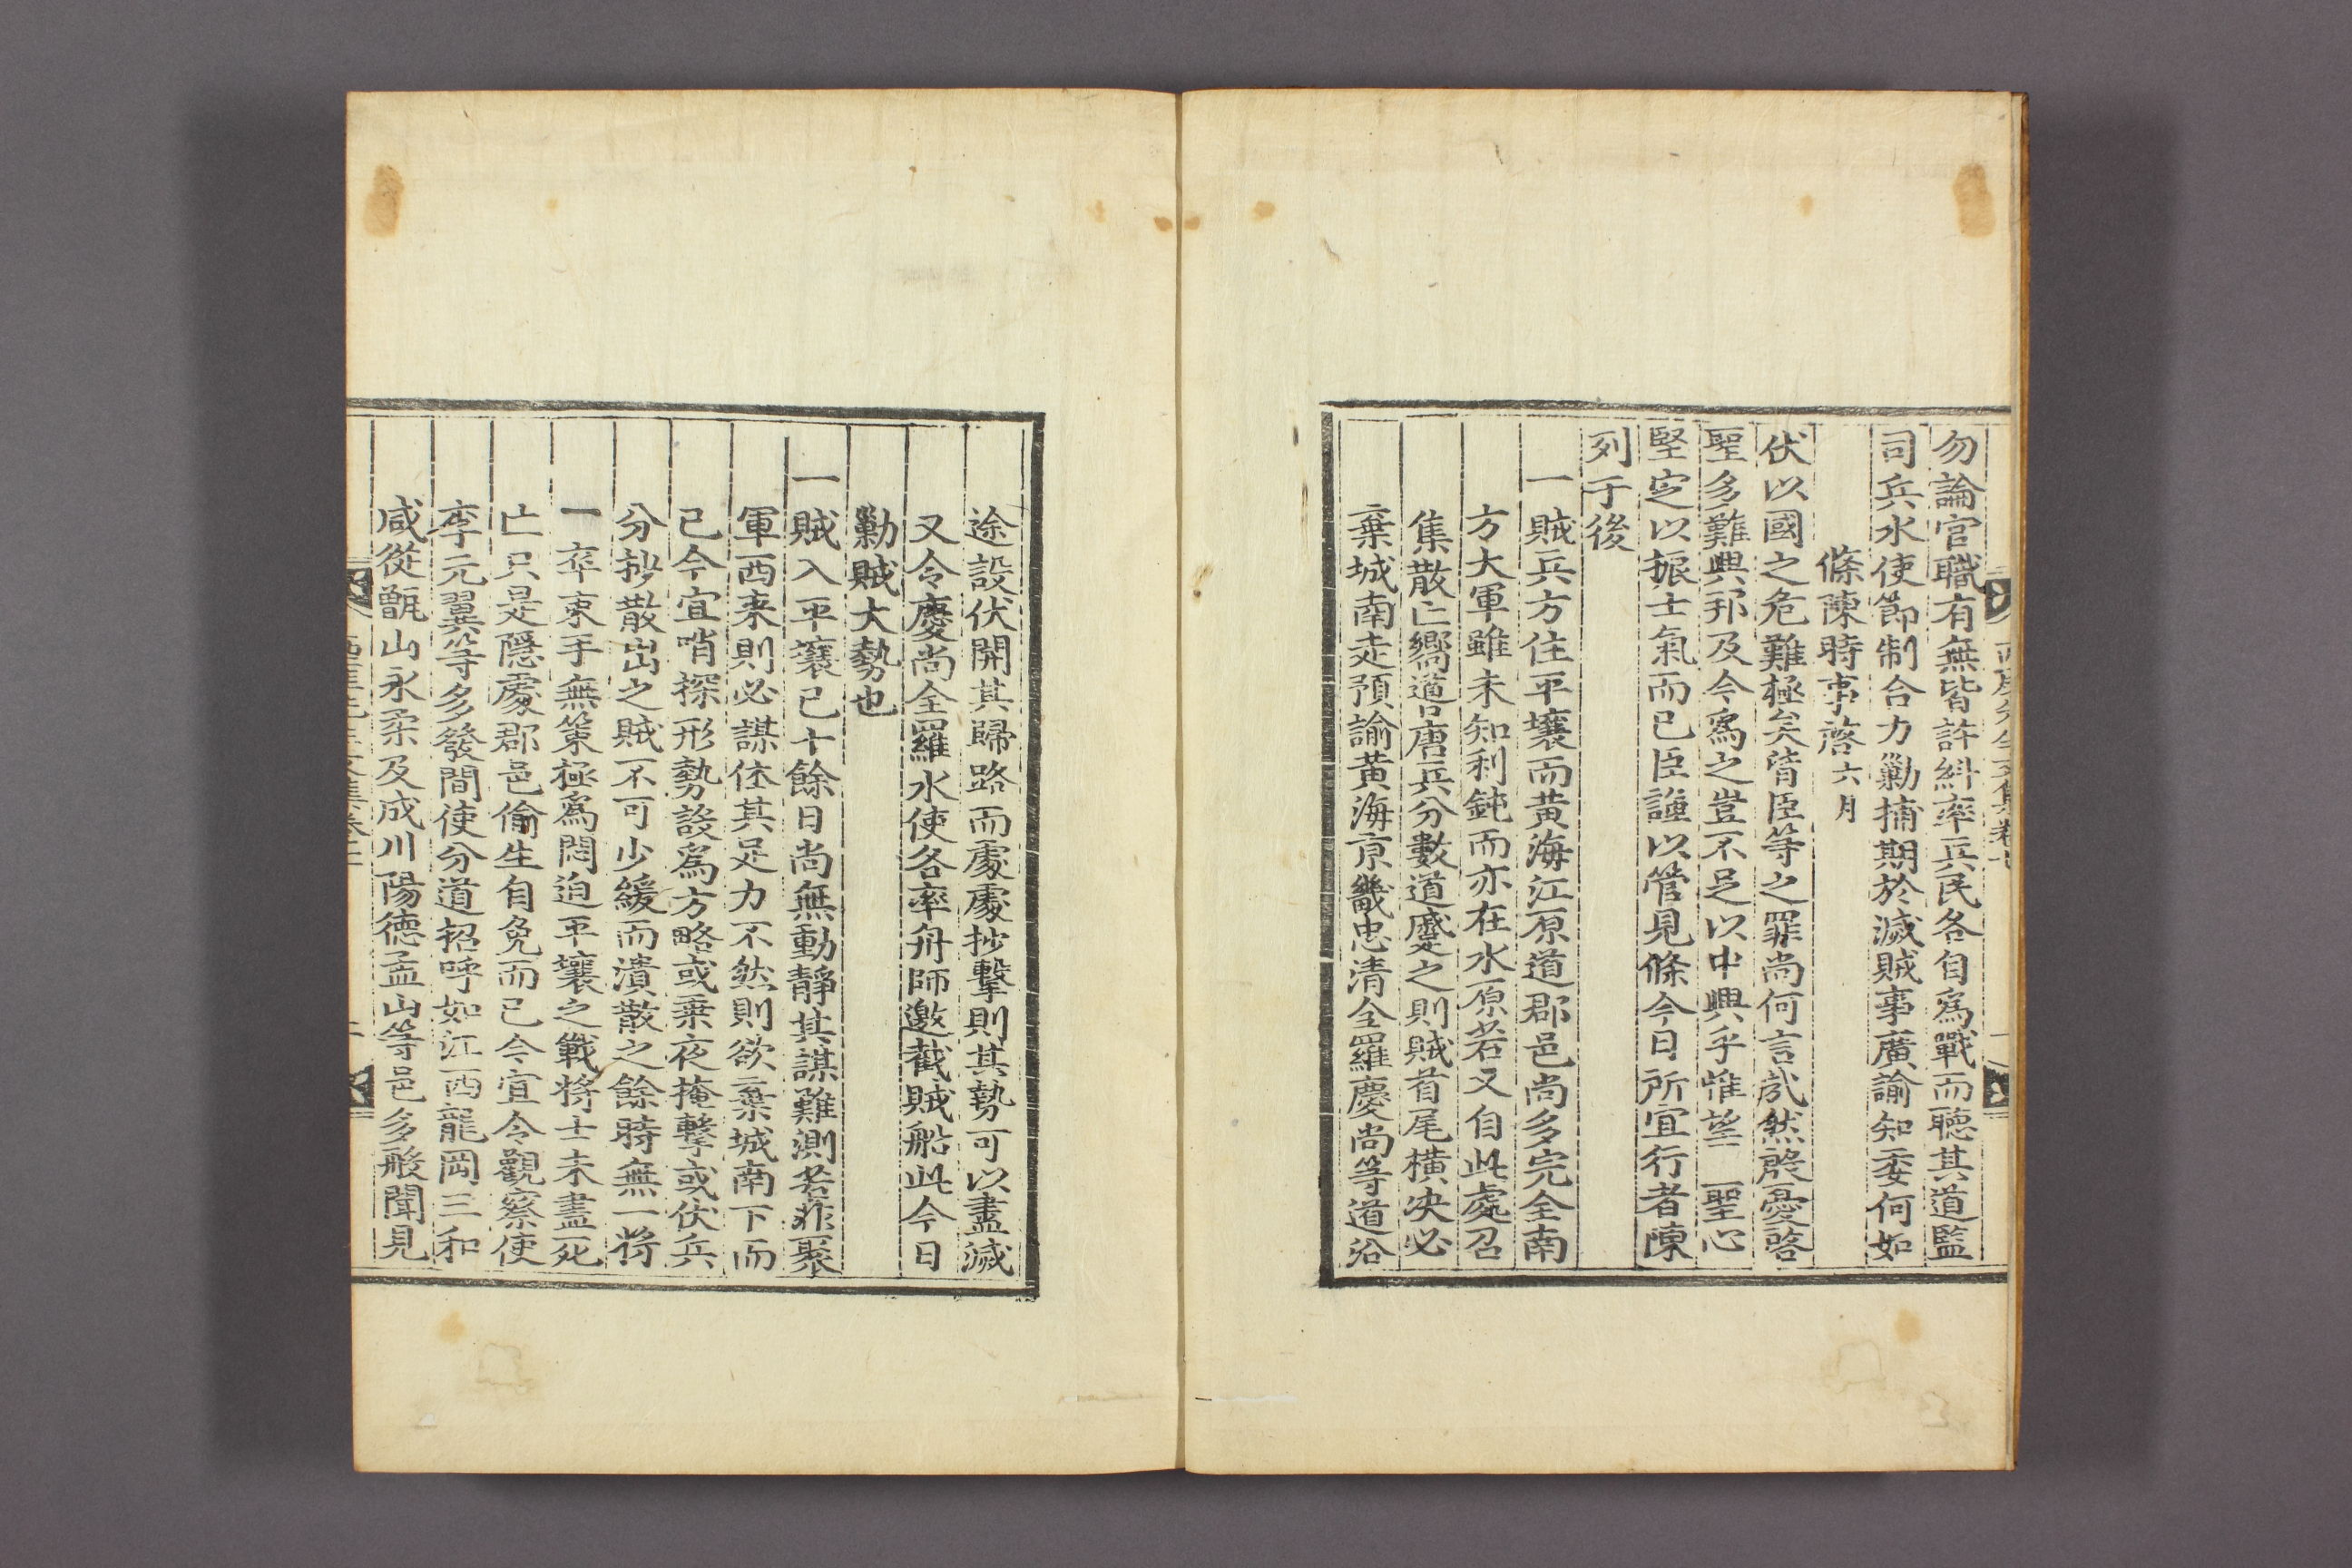 勿論官職有無皆許糾率兵民各自爲戰而聽其道監
司兵水使節制合力勦捕期於滅賊事廣諭知委何如
條陳時事啓六月
伏以國之危難極矣臣等之罪尚何言哉然殷憂啓
聖多難興邦及今爲之豈不足以中興乎惟望 聖心
堅定以振士氣而已臣謹以管見條今日所宜行者陳
列于後
一賊兵方住平壤而黃海江原道郡邑尚多完全南
方大軍雖未知利鈍而亦在水原若又自此處召
集散亡嚮道唐兵分數道蹙之則賊首尾橫决必
棄城南走預諭黃海京畿忠清全羅慶尚等道沿
途設伏開其歸路而處處抄擊則其勢可以盡滅
又令慶尚全羅水使各率舟師邀截賊船此今日
勦賊大勢也
一賊入平壤已十餘日尚無動靜其謀難測若非聚
軍西来則必謀休其足力不然則欲棄城南下而
已今宜哨探形勢設爲方略或乗夜掩擊或伏兵
分抄散出之賊不可少緩而潰散之餘時無一將
一卒束手無策極爲悶迫平壤之戰將士未盡死
亡只是隱處郡邑偷生自免而已今宜令觀察使
李元翼等多發間使分道招呼如江西龍岡三和
咸從甑山永柔及成川陽德孟山等邑多般聞見